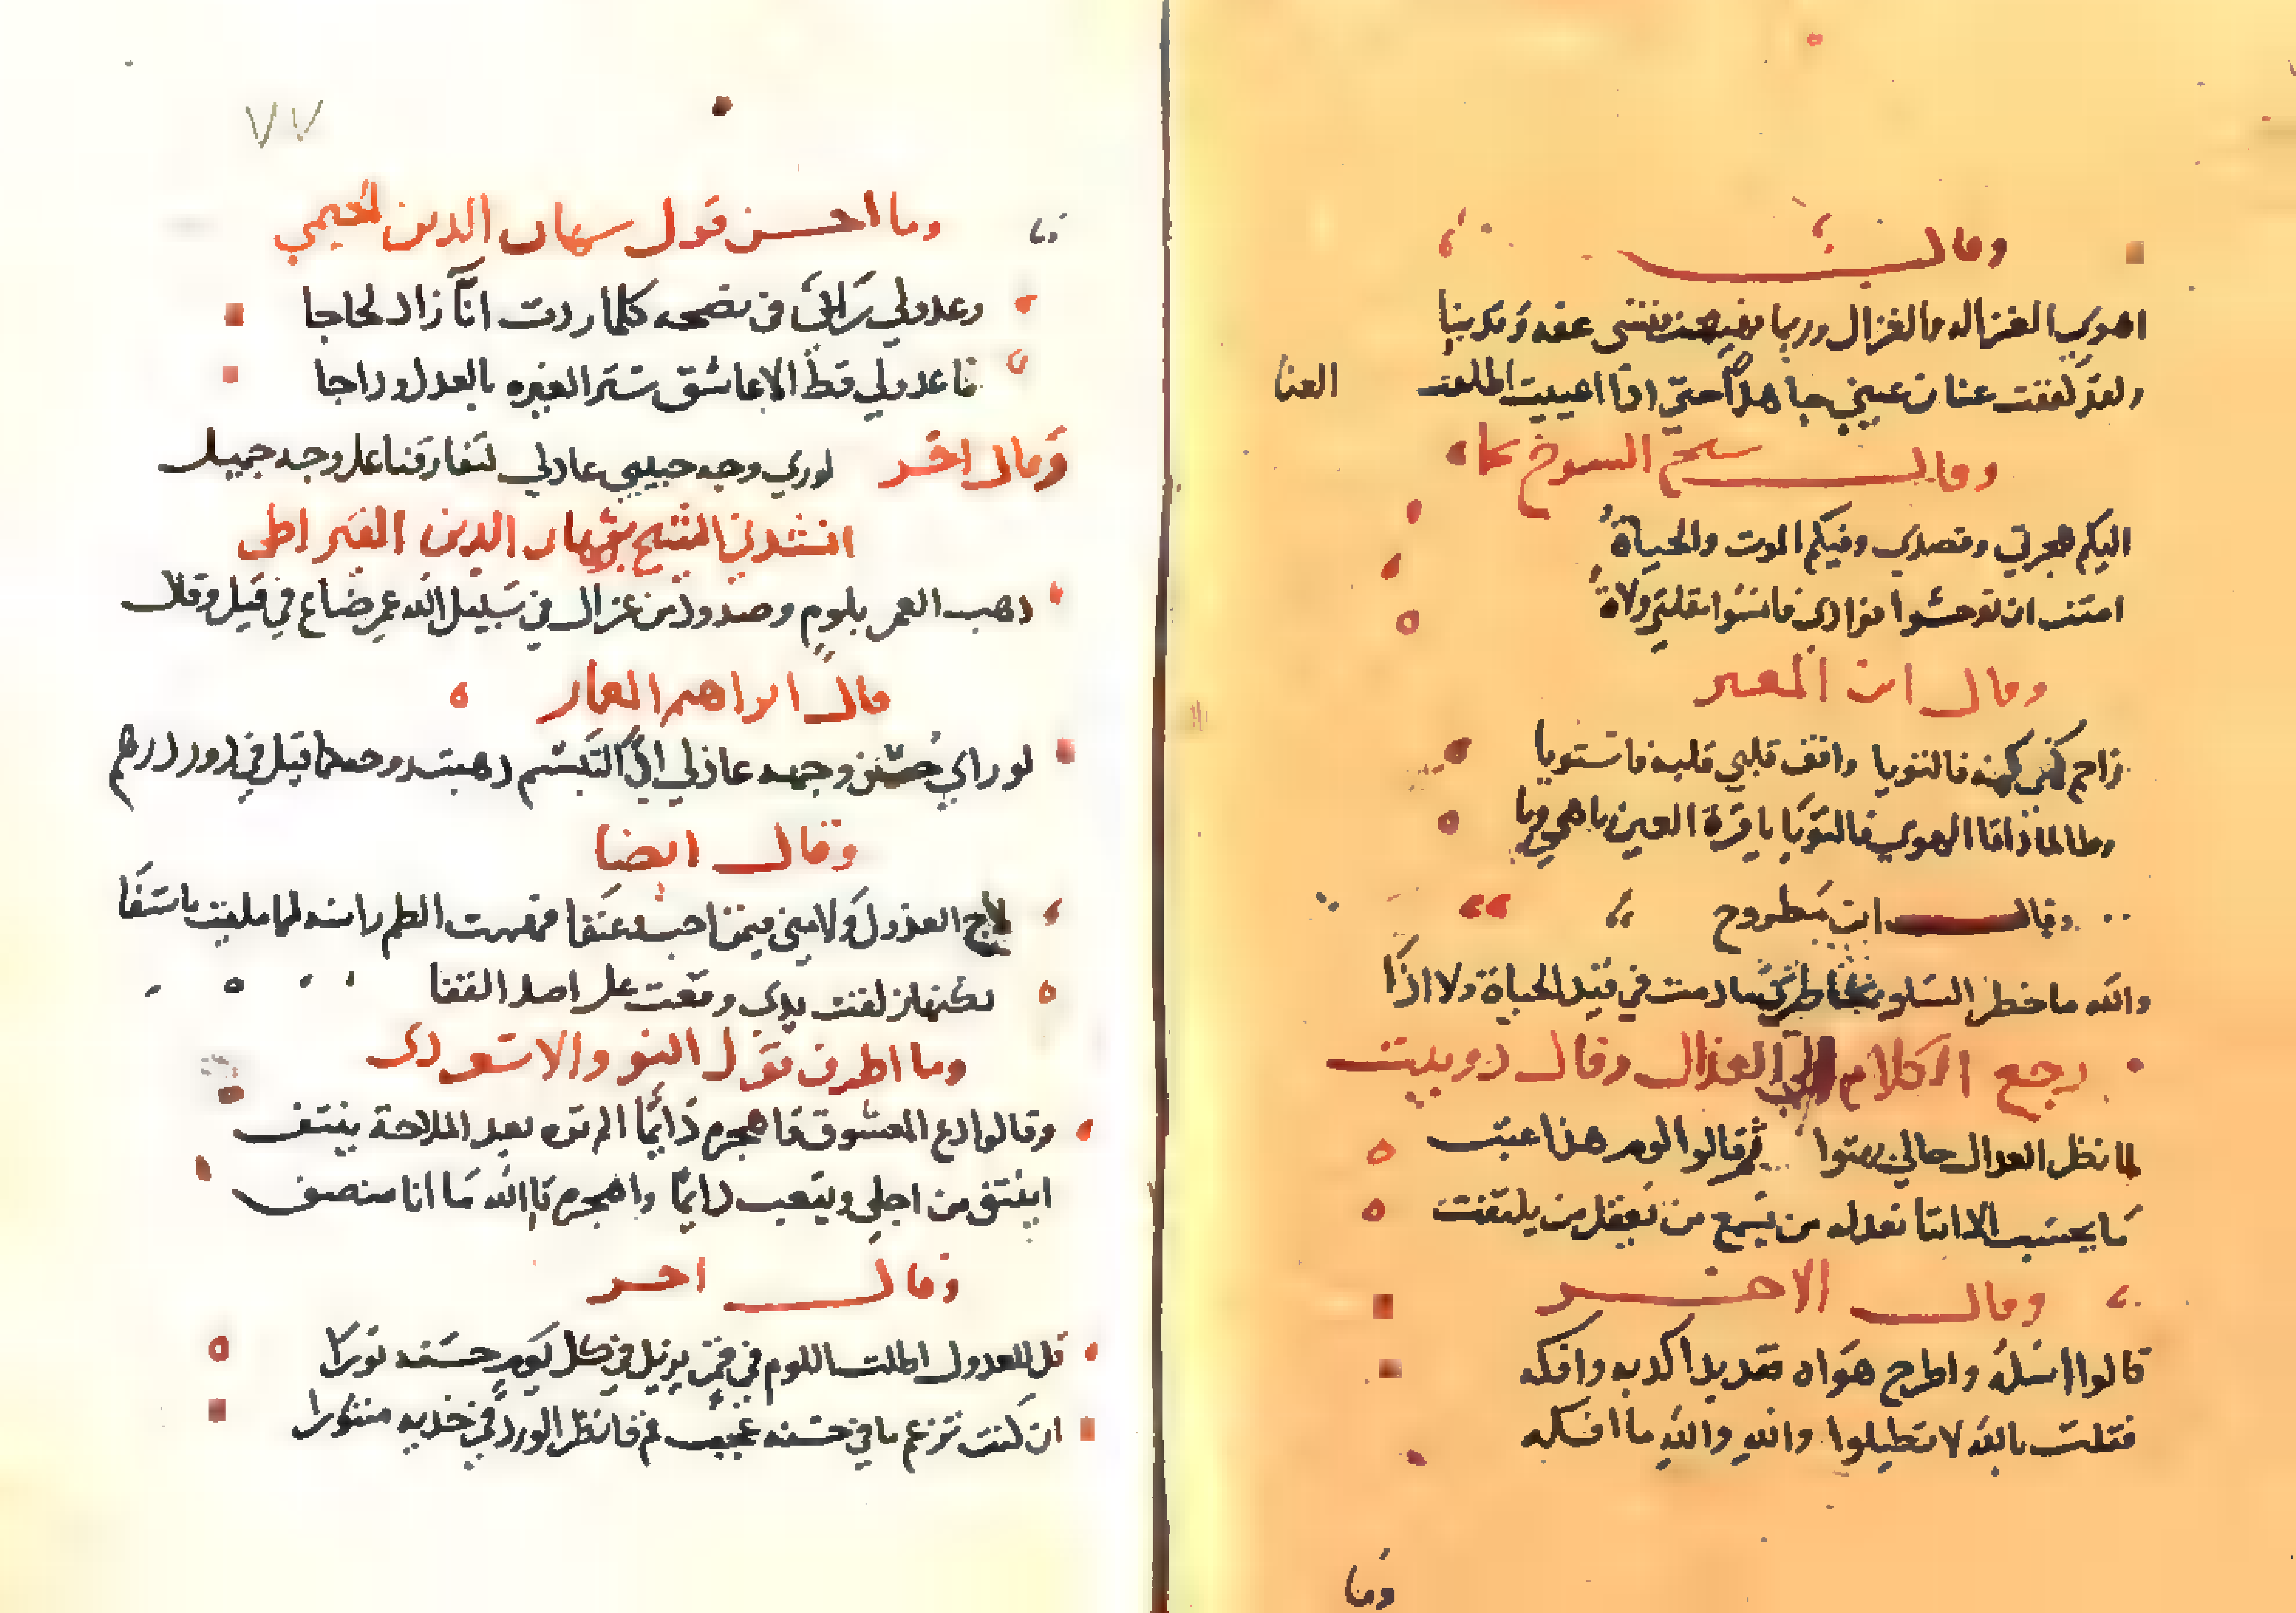 وقال
اهوي الغزاله والغزال وربما نهنهت نفسي عفه وتدينا
ولقد كففت عنان عيني جاهدا حتي اذا اعييت اطلقت العنا
وقال شيخ الشيوخ بحماه
اليكم هجرتي وقصدي وفيكم الموت والحياة
امنت ان توحشوا فوادي فانسوا مقلتي ولاة
وقال ابن المعتز
زاحم كمي كمه فالتويا وافق قلبي قلبه فاستويا
وطالما ذاقا الهوي فالتويا يا قرة العين ويا همي ويا
وقال ابن مطروح
والله ما خطر السلو بخاطري ما دمت في قيد الحياة ولا اذا
رجع الكلام الي العذال وقال دوبيت
لما نظر العدال حالي بهتوا ثم قالوا لوم هذا عبث
ما يحسب الا اننا نعدله من يسمع من يعقل من يلتفت
وقال الاخر
قالوا اسله واطرح هواه فقد بدا كدبه وافكه
فقلت بالله لا تطيلوا والله والله ما افكه
وما
٧٧
وما احسن قول شهاب الدين الخيمي
وعدولي رابني في نصحه كلما زدت انا زاد لجاجا
ما عدولي قط الا عاشق ستر الغيره بالعدل وداجا
وقال اخر لو راي وجه حبيبي عادلي لتفارقنا علي وجه جميل
انشدني الشيخ برهان الدين القيراطي
دهب العمر بلوم وصدود من غزال في سبيل الله عمر ضاع في قيل وقال
قال ابراهيم المعمار
لو راي حسن وجهه عاذلي التبسم دهبت روحه كما قيل في دور درهم
وقال ايضا
لاج العذول ولامني فيمن احب وعنفا فهممت الطم راسه لما ملئت تاسفا
لكنها زلقت يدي وقعت علي اصل القفا
وما اظرف قول النور الاسعردي
وقالوا دع المعشوق فاهجره دائما الم تره بعد الملاحة ينتف
اينتف من اجلي ويتعب دايما واهجره تالله ما انا منصف
وقال اخر
قل للعدول اطلت اللوم في قمر يزيل في كل يوم حسنه نورا
ان كنت تزعم ما في حسنه عجب قم فانظر الورد في خديه منثورا